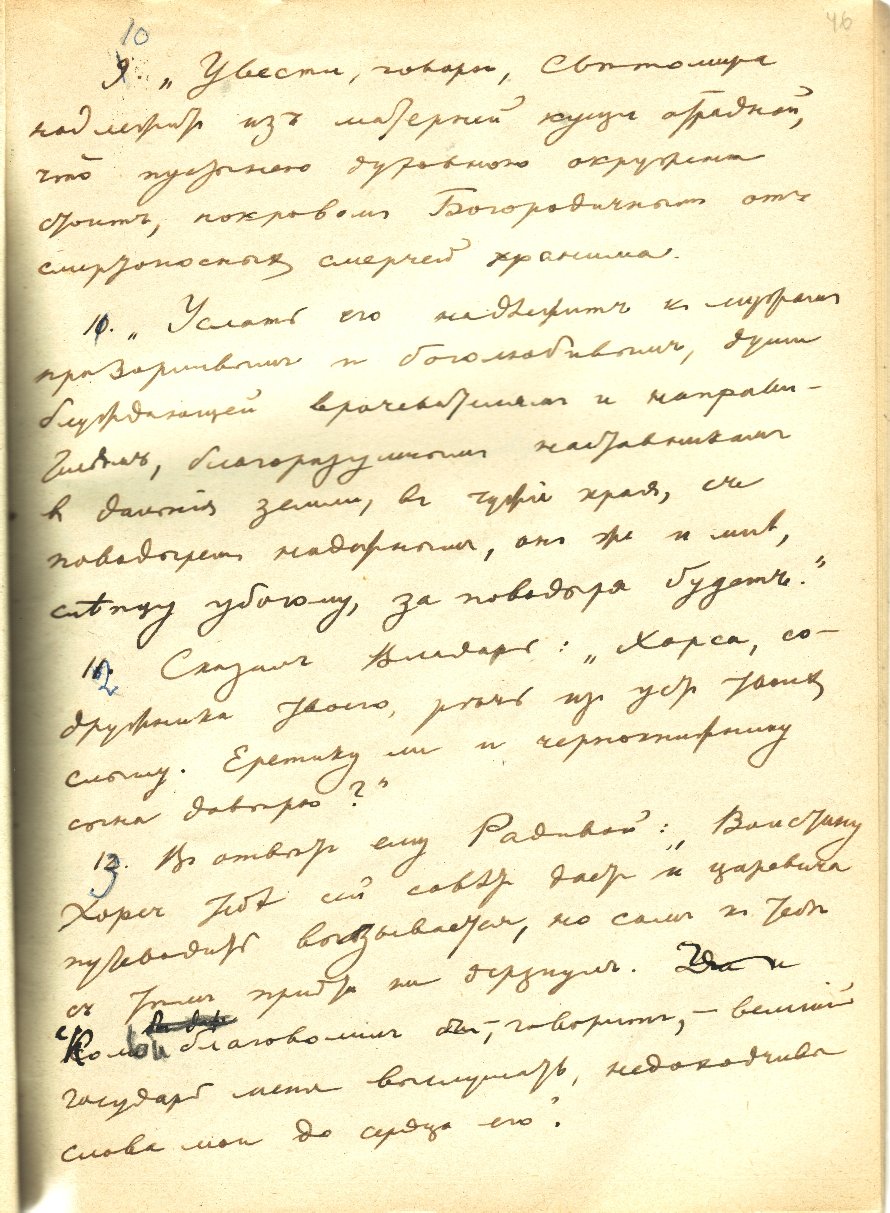 46
10
9. „Увести, говори, Свѣтомира
надлежитъ изъ матерней кущи отрадной,
что пустынею духовною окружена
стоитъ, покровомъ Богородичнымъ отъ
смертоносныхъ смерчей хранима.
11. „Услать его надлежитъ к мужамъ
прозорливымъ и боголюбивымъ, души
блуждающей врачевателямъ и направи-
телямъ, благоразумнымъ наставникамъ
в дальнія земли, въ чужіе края, съ
поводыремъ надежнымъ, онъ же и мнѣ,
слѣпцу убогому, за поводыря будетъ."
12. Сказалъ Владарь: „Хорса, со-
дружника твоего, рѣчь изъ устъ твоихъ
слышу. Еретику ли и чернокнижнику
сына довѣрю?"
13. Въ отвѣтъ ему Радивой: „Воистину
Хорсъ тебѣ сей совѣтъ даетъ и царевича
путеводить вызывается, но самъ къ тебѣ
съ тѣмъ прійти не дерзнулъ.
„Коли бы благоволилъ, – говоритъ, – великій
государь меня выслушать, недоходчивы
слова мои до сердца его".